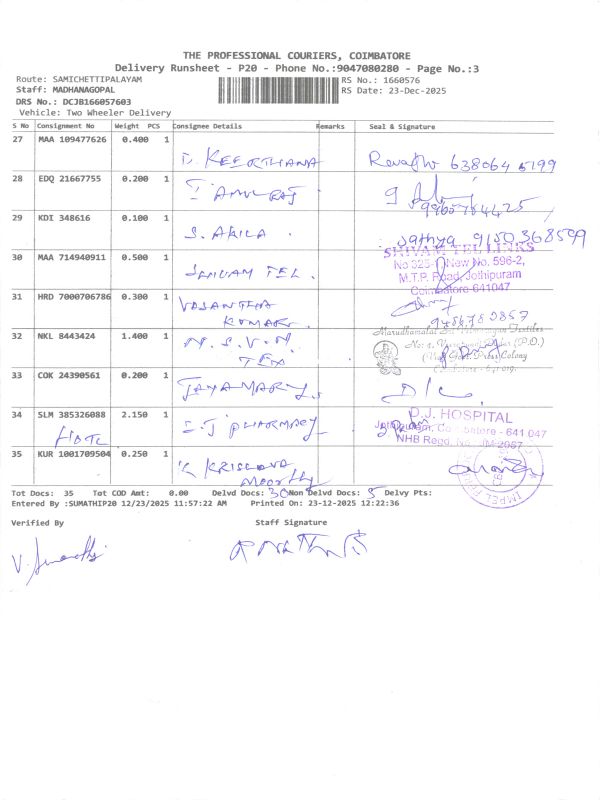 THE PROFESSIONAL COURIERS, COIMBATORE
Delivery Runsheet - P20 - Phone No.:9047080280 - Page No.:3
Route: SAMICHETTIPALAYAM RS No.: 1660576
Staff: MADHANAGOPAL RS Date: 23-Dec-2025
DRS No.: DCJB166057603
Vehicle: Two Wheeler Delivery
S No Consignment No Weight PCS Consignee Details Remarks Seal & Signature
27 MAA 109477626 0.400 1
D. KEERTHANA Revathi 638064 5199
28 EDQ 21667755 0.200 1
AMULRAJ
29 KDI 348616 0.100 1
S. AKILA. Sathya 9150368599
SHIVAM TEL LINKS
30 MAA 714940911 0.500 1 New No. 596-2,
SHIVAM TEL. M.T.P. Road, Jothipuram
Coimbatore-641047
31 HRD 7000706786 0.300 1
VASANTHA
KUMAR.
32 NKL 8443424 1.400 1
N.S.V.N. (P.O.)
TEX Press Colony
33 COK 24390561 0.200 1
JAYAMARY. D/C.
34 SLM 385326088 2.150 1 D.J. HOSPITAL
PHARMACY Jothipuram, Coimbatore - 641 047
NHB Regd. No.
35 KUR 1001709504 0.250 1
K KRISHNA
MOORTHY
Tot Docs: 35 Tot COD Amt: 0.00 Delvd Docs: 30 Non Delvd Docs: 5 Delvy Pts:
Entered By :SUMATHIP20 12/23/2025 11:57:22 AM Printed On: 23-12-2025 12:22:36
Verified By Staff Signature